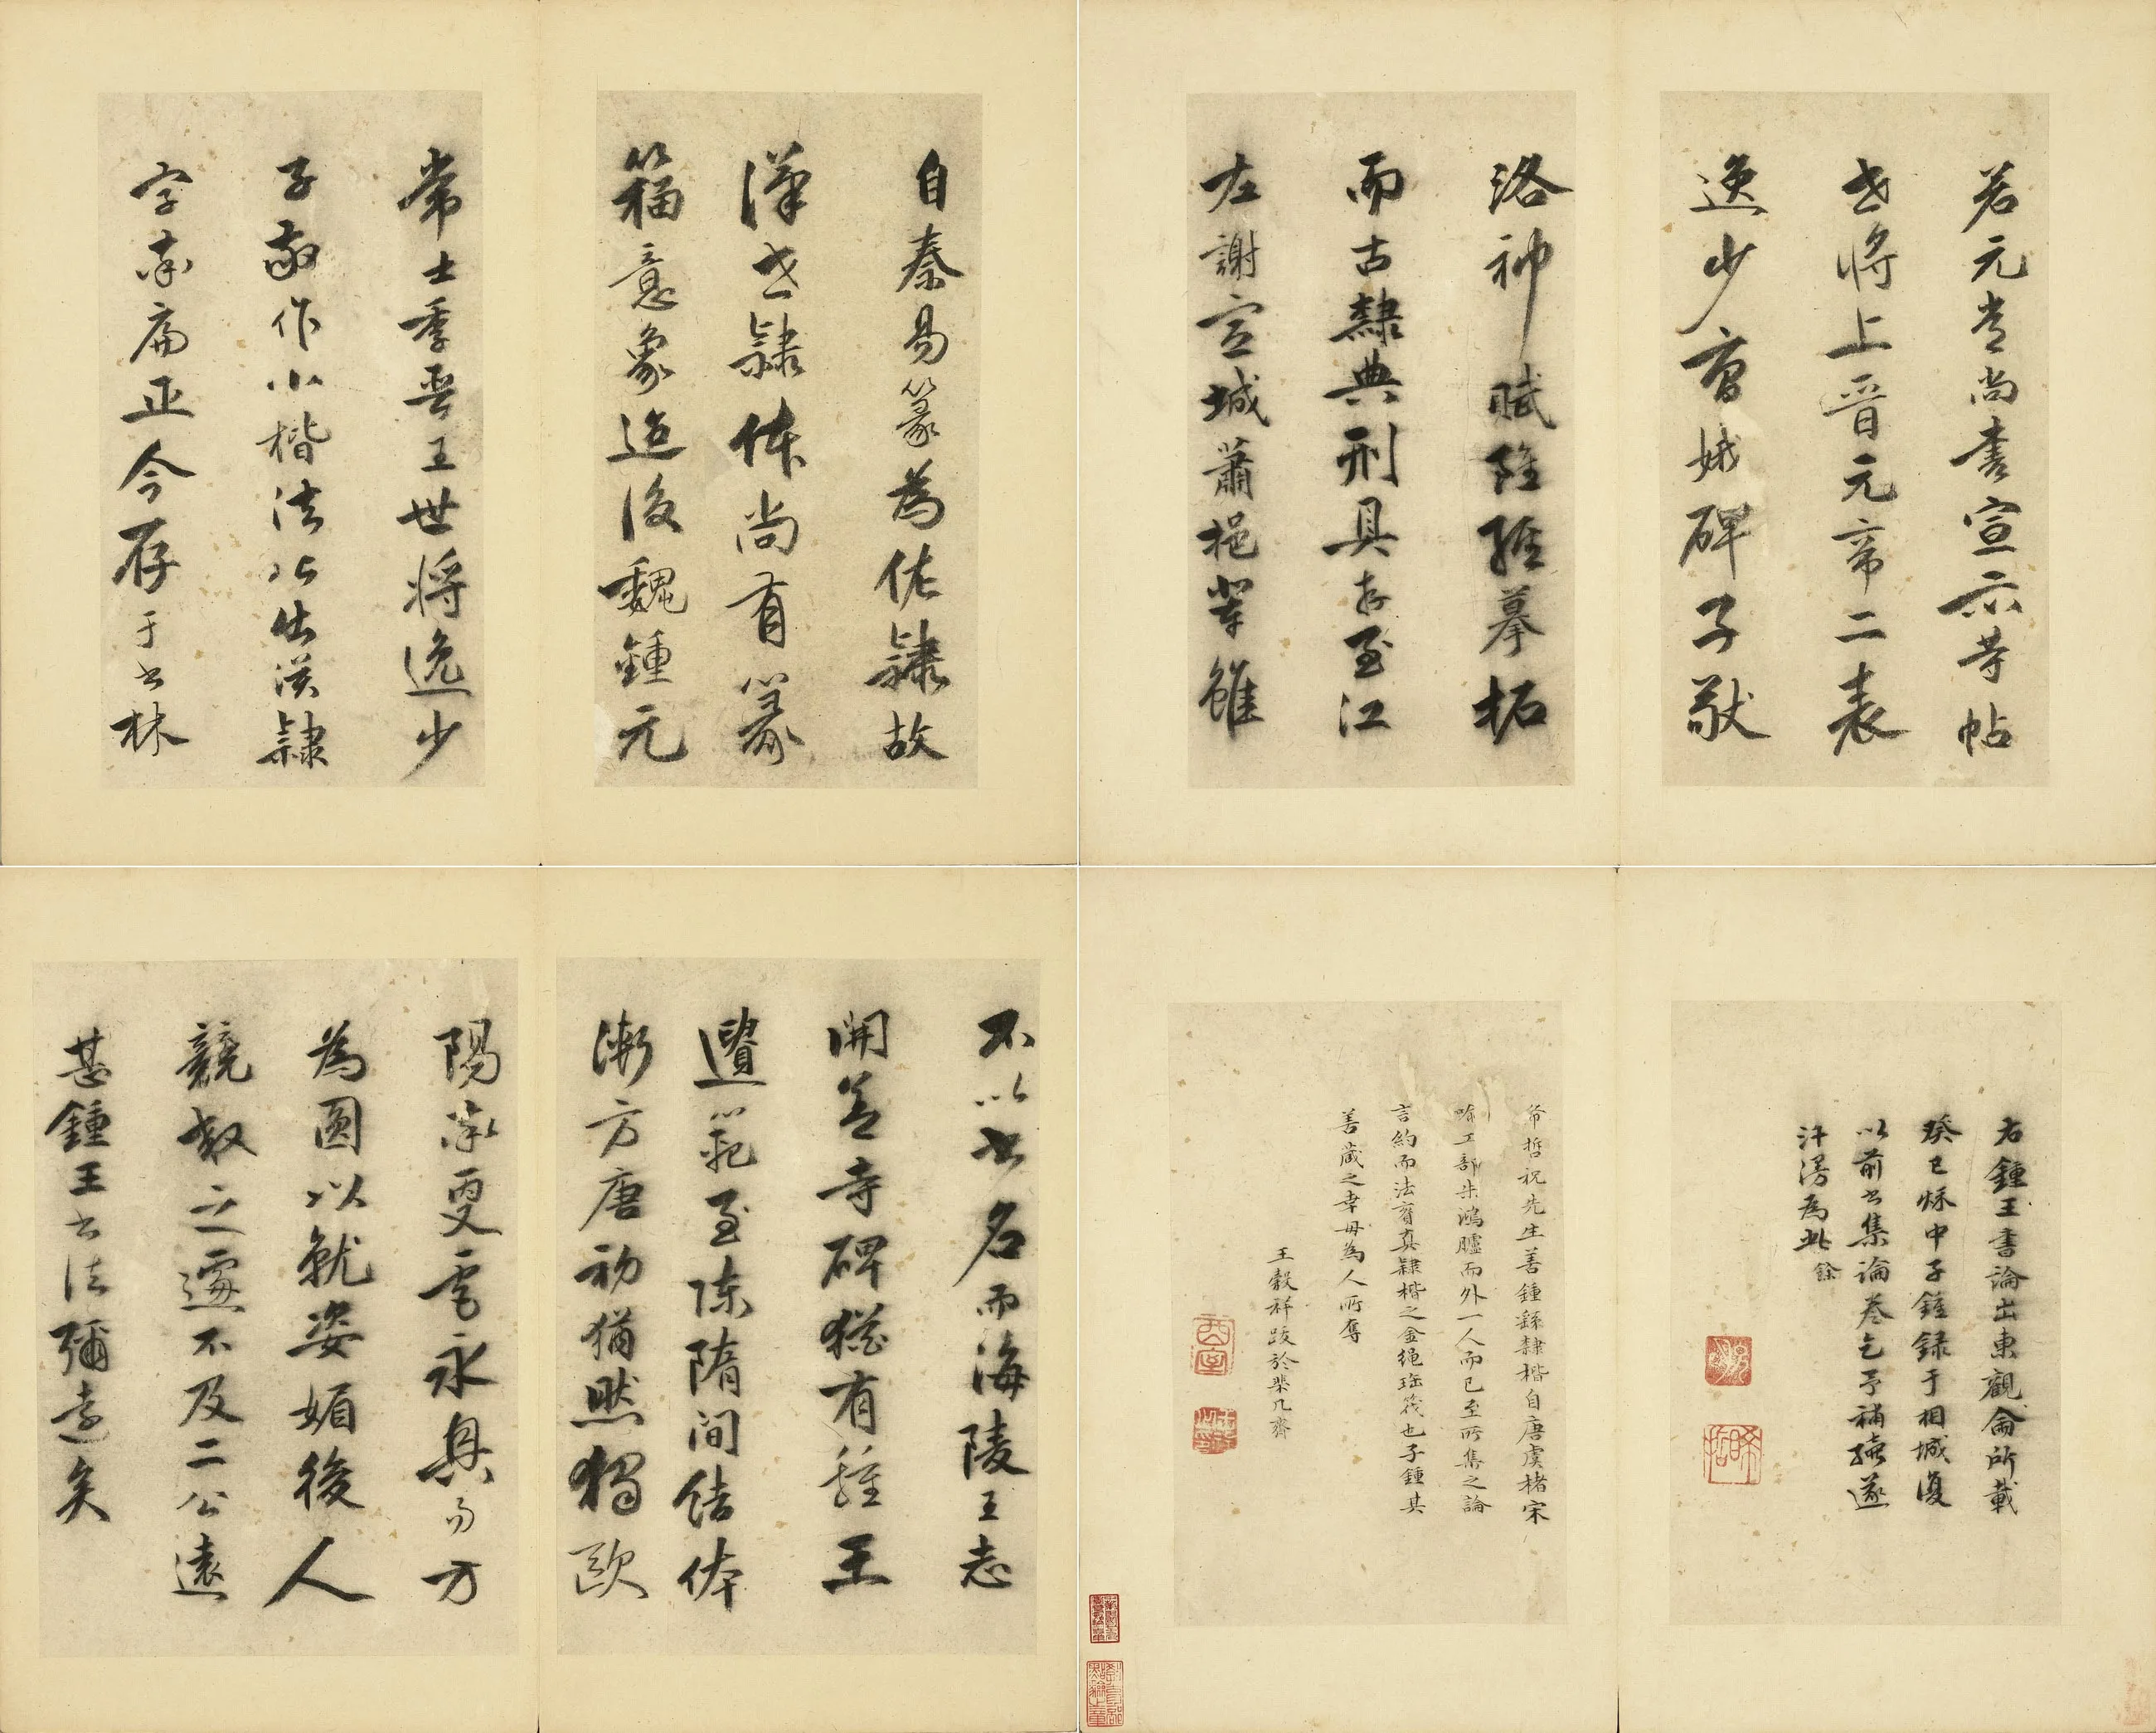 自秦易篆為佐隸故
漢世隸体尚有篆
籀意象迨後魏鍾元
常士季晉王世將逸少
子敬作小楷法皆出漢隸
字亦扁正今存于書林
若元常尚書宣示等帖
世將上晉元帝二表
逸少曹娥碑子敬
洛神賦雖經摹拓
而古隸典刑具在至江
左謝宣城蕭挹輩雖
不以書名而海陵王志
開善寺碑猶有鍾王
遺範至陳隋間結体
漸方唐初猶然獨歐
陽率更虞永興易方
為圓以就姿媚後人
競效之遽不及二公遠
甚鍾王書法彌遠矣
右鍾王書論出東觀餘所載
癸巳秋中子鍾録于相城復
以前書集論卷乞予補遂
汗漫為此
餘
希哲祝先生善鍾繇隸楷自唐虞楮宋
工部朱鴻臚而外一人而已至所集之論
言約而法育真隸楷之金绳珤筏也子鍾其
善蔵之幸毋為人所奪
王穀祥跋於棐几齋